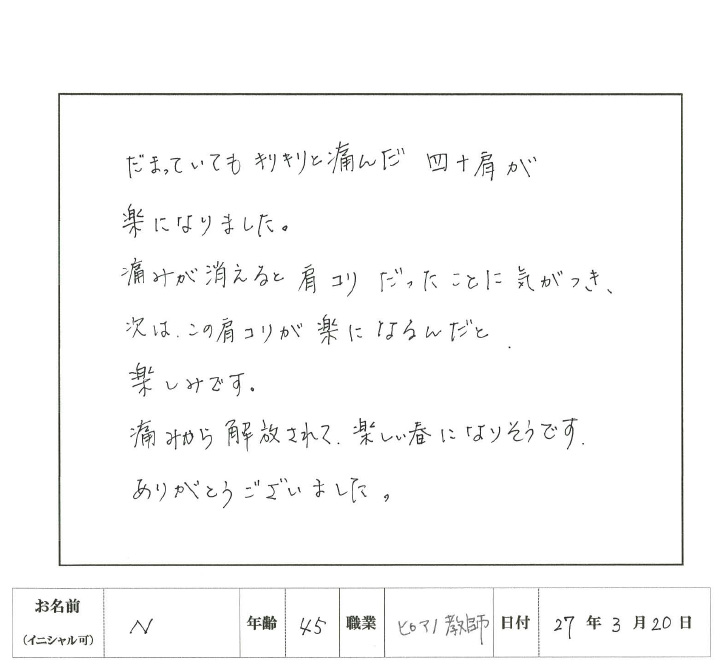 だまっていても キリキリと痛んだ 四十肩が
楽になりました。
痛みが消えると 肩コリ だったことに 気がつき、
次は、この肩コリが 楽に なるんだと、
楽しみです。
痛みから 解放されて、楽しい春になりそうです。
ありがとうございました。
お名前 (イニシャル可) N 年齢 45 職業 ピアノ教師 日付 27 年 3 月 20 日